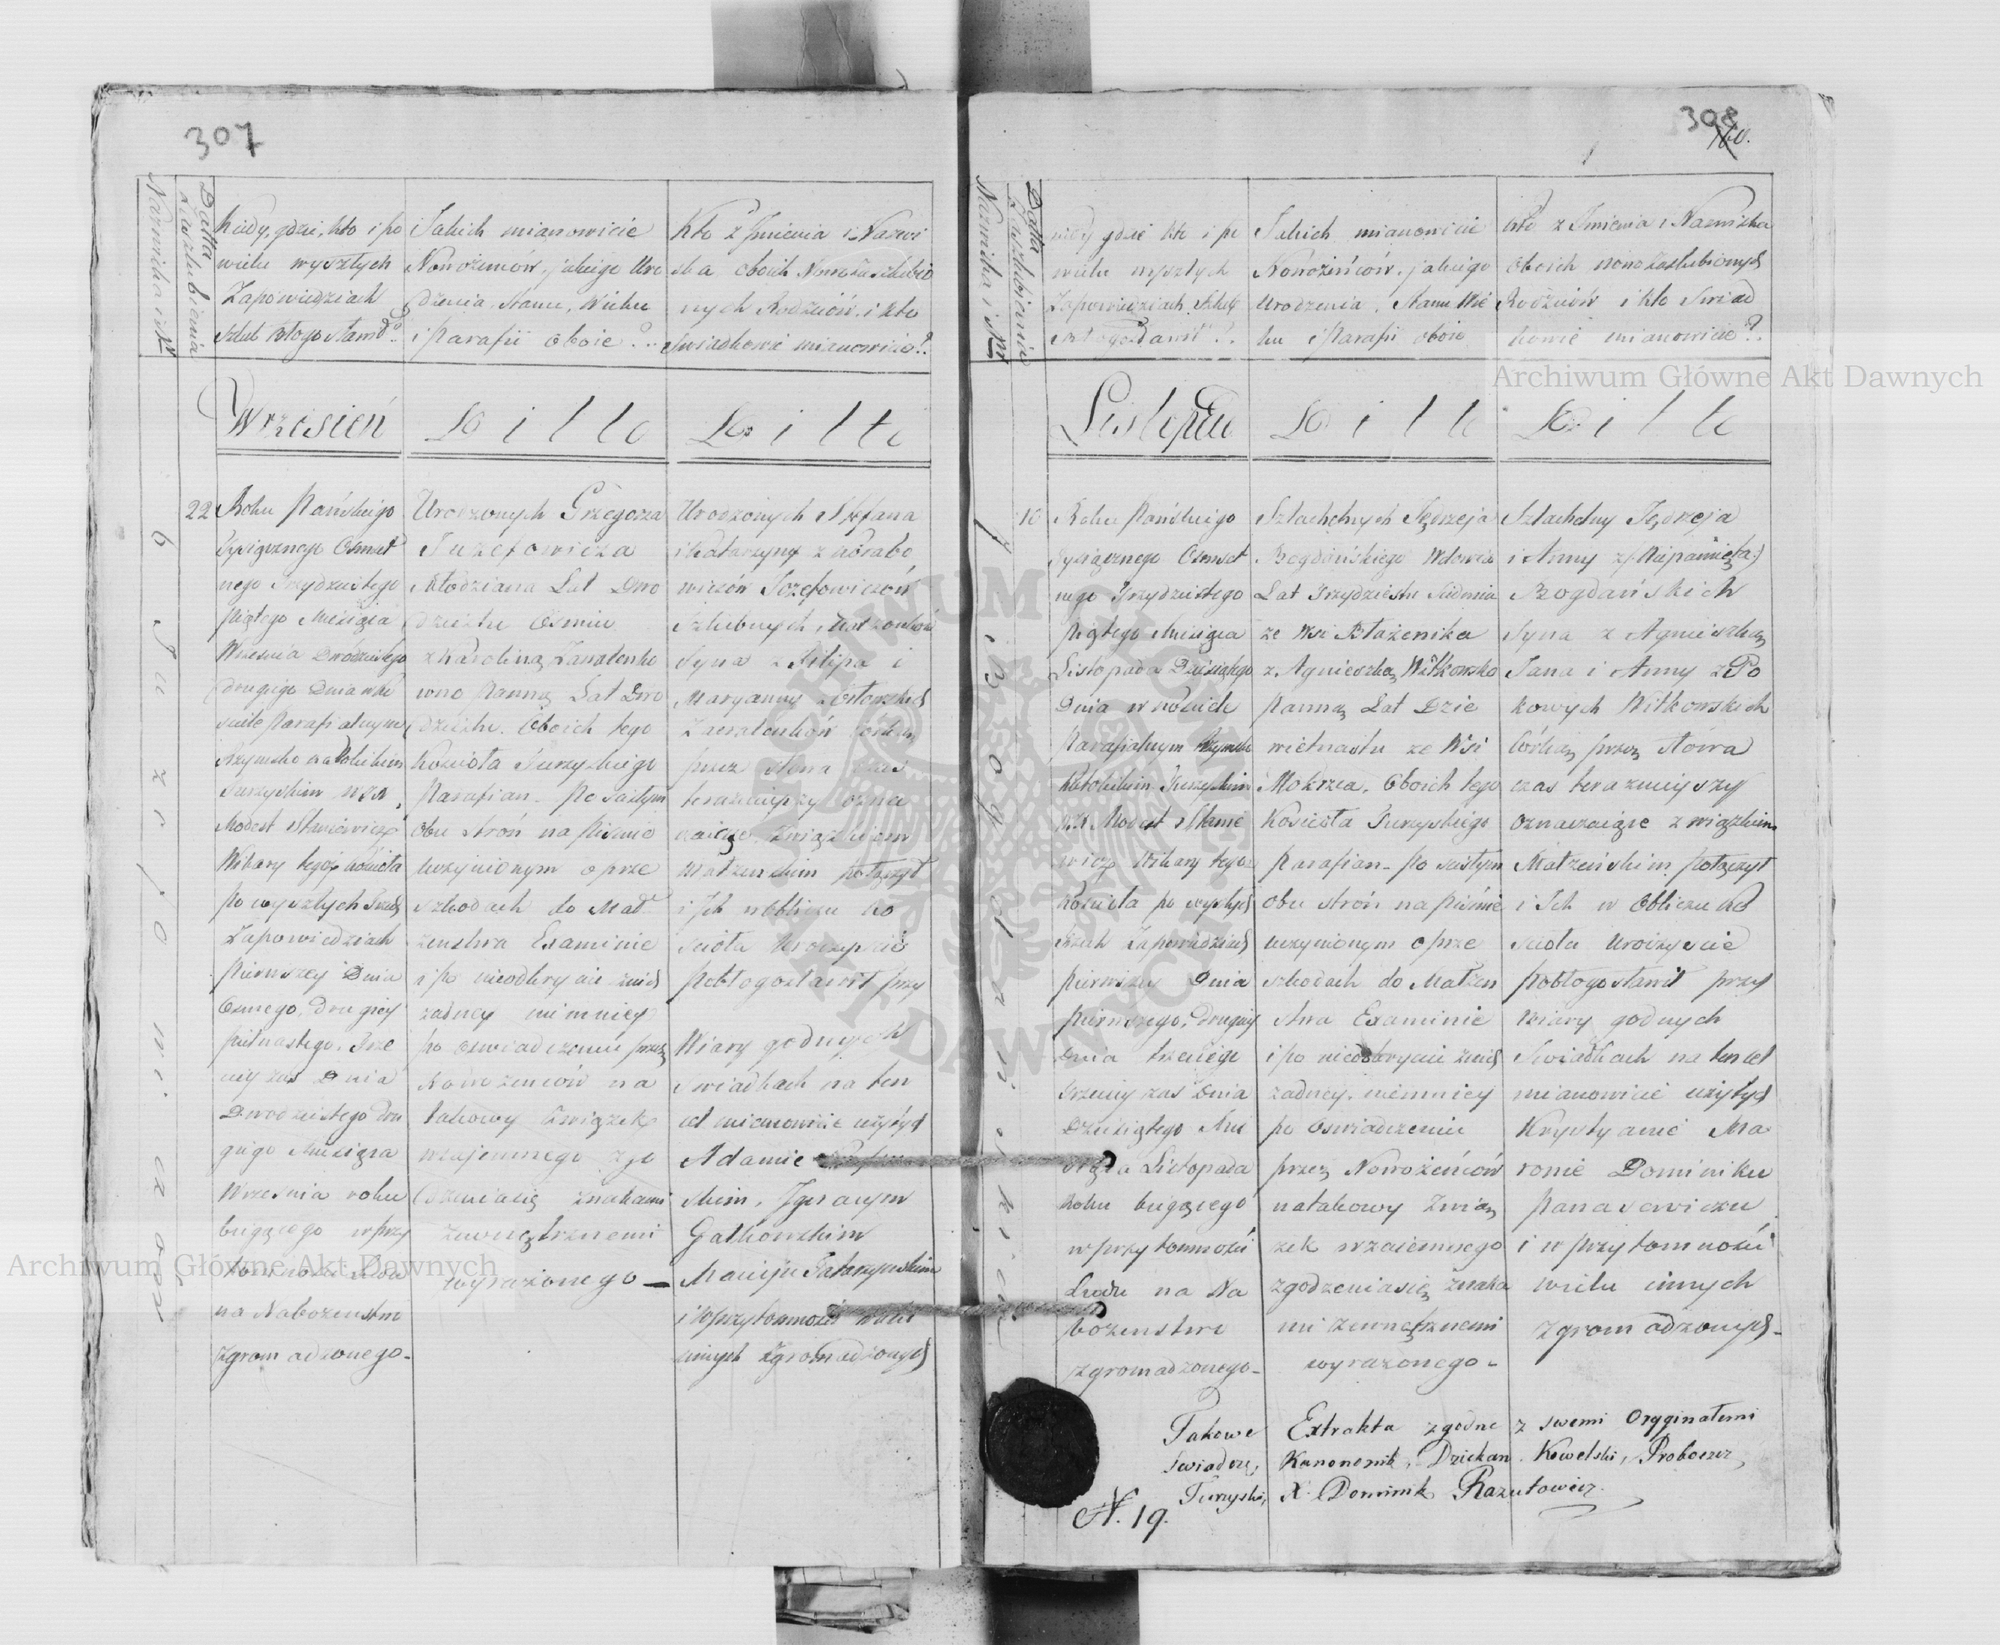 307
Nazwiska i Nr
Datta Zaszlubienia
Kiedy, gdzie, kto i po
wielu wyszłych
Zapowiedziach
szlub błogosławił?
Jakich mianowicie
Nowożencow, jakiego Uro
dzenia, Stanu, Wieku
i Parafii oboie?
Kto z Jmienia i Nazwi
ska oboich Nowozaszlubio
nych Rodziców, i kto
Swiadkowie mianowicie?
Wrzesień
Ditto
Ditto
6 Juzefowiczow
22
Roku Pańskiego
Tysiącznego Osmset
nego Trzydziestego
piątego Miesiąca
Wrzesnia Dwódziestego
drugiego Dnia w Ko
sciele Parafialnym
Rzymsko Katolickim
Turzyskim WJX
Modest Staniewicz
Wikary tegoż kościoła
po wyszłych trzech
Zapowiedziach
pierwszey Dnia
Osmego, drugiey
pietnastego, Trze
ciey zas Dnia
Dwodziestego dru
giego Miesiąca
Wrzesnia roku
biegącego w przy
tomnosci Ludu
na Nabożenstwo
Zgromadzonego
Urodzonych Grzegorza
Juzefowicza
Młodziana Lat Dwo
dziestu Osmiu
z Karoliną Zawalenko
wno Panną Lat Dwo
dziestu. Oboich tego
Kościoła Turzyskiego
Parafian. Po zaszłym
obu stroń na Piśmie
uczynionym o prze
szkodach do Mał
zenstwa Examinie
i po nieodkryciu onych
zadney niemniey
po oswiadczeniu przez
Nowożencow na
takowy Związek
wzajemnego zgo
dzenia się znakami
zewnętrznemi
wyrażonego
Urodzonych Stefana
i Katarzyny z
Józefowiczów
Szlubnych Małżonków
Syna z Filipa i
Maryanny
Zawalenków corką
przez słowa czas
terazniejszy ozna
czaiące Związkiem
Małżenskim połączył
i Jch w obliczu Ko
scioła Uroczyscie
Pobłogosławił przy
Wiary godnych
Swiadkach na ten
cel mianowicie użytych
Adamie
skim, Jgnacym
Gatkowskim
Macieju
i w przytomności wielu
innych Zgromadzonych
308
160.
Nazwiska i Nr
Datta Zaszlubienia
Kiedy gdzie kto i po
wielu wyszłych
Zapowiedziach Szlub
błogosławił?
Jakich mianowicie
Nowożińców, jakiego
Urodzenia, Stanu Wie
ku i Parafii oboie
Kto z Jmienia i Nazwiska
Oboich nowozaszlubionych
Rodziców i kto Swiad
kowie mianowicie?
Listopad
Ditto
Ditto
7 Bogdańskich
10
Roku Pańskiego
Tysiącznego Osmset
nego Trzydziestego
piątego Miesiąca
Listopada Dziesiątego
Dnia w Kościele
Parafialnym Rzymsko
Katolickim Turzyskim
WJX Modest Stanie
wicz Wikary tegoż
Kościoła po wyszłych
trzech Zapowiedziach
pierwszey Dnia
pierwszego, drugiey
Dnia trzeciego
trzeciey zas Dnia
Dziesiątego Mie
siąca Listopada
Roku biegącego
w przytomności
Ludu na Na
bożenstwo
zgromadzonego
Szlachetnych Jędrzeja
Bogdańskiego Wdowca
Lat Trzydziestu Siedmiu
ze Wsi Błażenika
z Agnieszką Witkowsko
Panną Lat Dzie
wietnastu ze Wsi
Mokrzca, Oboich tego
Kościoła Turzyskiego
Parafian po zaszłym
obu stroń na piśmie
uczynionym o prze
szkodach do Małżen
stwa Examinie
i po nieodkryciu onych
zadney, niemniey
po oswiadczeniu
przez Nowożeńców
na takowy Związ
zek wzaiemnego
zgodzenia się znaka
mi zewnętrznemi
wyrażonego
Szlachetny Jędrzeja
i Anny z (Niepamięta)
Bogdańskich
Syna z Agnieszką
Jana i Anny z Po
kowych Witkowskich
Córką przez słowa
czas terazniejszy
oznaczaiące związkiem
Małżeńskim połączył
i Jch w Obliczu Ko
scioła Uroczyscie
pobłogosławił przy
Wiary godnych
Swiadkach na ten cel
mianowicie użytych
Krystyanie Ma
ronie Dominiku
Panasewiczu
i w przytomności
wielu innych
Zgromadzonych
Takowe Extrakta zgodne z swemi Oryginałami
swiadczę, Kanonnik, Dziekan Kowelski, Proboszcz
Turzyski, X. Dominik Razutowicz.
N. 19.
Archiwum Główne Akt Dawnych
Archiwum Główne Akt Dawnych
ARCHIWUM GŁÓWNE AKT DAWNYCH